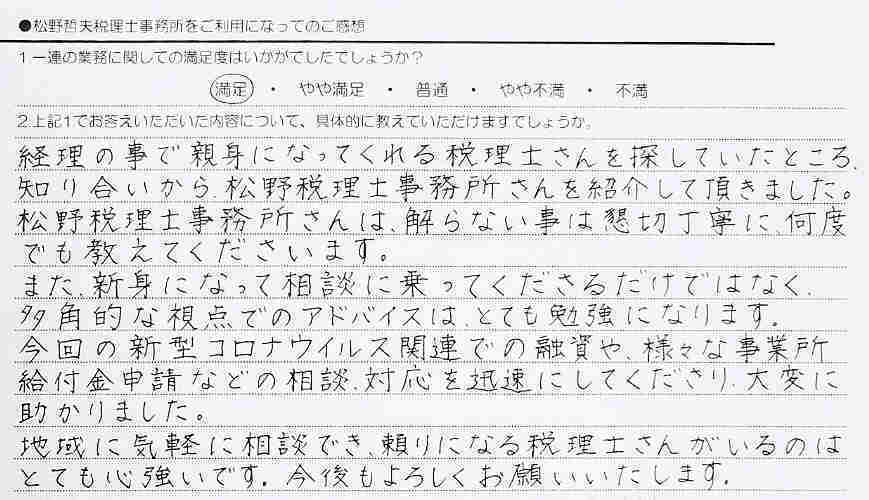 ●松野哲夫税理士事務所をご利用になってのご感想
1 一連の業務に関しての満足度はいかがでしたでしょうか？
満足 ・ やや満足 ・ 普通 ・ やや不満 ・ 不満
2.上記1でお答えいただいた内容について、具体的に教えていただけますでしょうか。
経理の事で親身になってくれる税理士さんを探していたところ、
知り合いから、松野税理士事務所さんを紹介して頂きました。
松野税理士事務所さんは、解らない事は懇切丁寧に、何度
でも教えてくださいます。
また、新身になって相談に乗ってくださるだけではなく、
多角的な視点でのアドバイスは、とても勉強になります。
今回の新型コロナウイルス関連での融資や、様々な事業所
給付金申請などの相談、対応を迅速にしてくださり、大変に
助かりました。
地域に気軽に相談でき、頼りになる税理士さんがいるのは
とても心強いです。今後もよろしくお願いいたします。